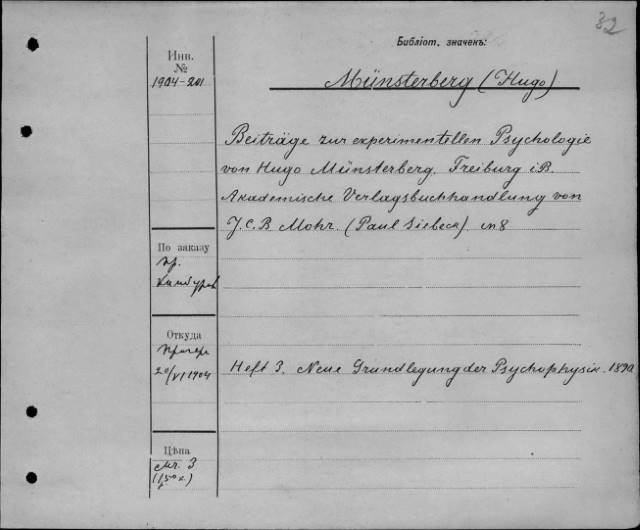 32
Библіот. значекъ:
Инв.
№
1904-201
Münsterberg (Hugo)
Beiträge zur experimentellen Psychologie
von Hugo Münsterberg. Freiburg i.B.
Akademische Verlagsbuchhandlung von
J.C.B Mohr. (Paul Siebeck) in 8
По заказу
пр.
Откуда
20/VI 1904
Heft 3. Neue Grundlegung der Psychophysik. 1890
Цѣна
Mr. 3